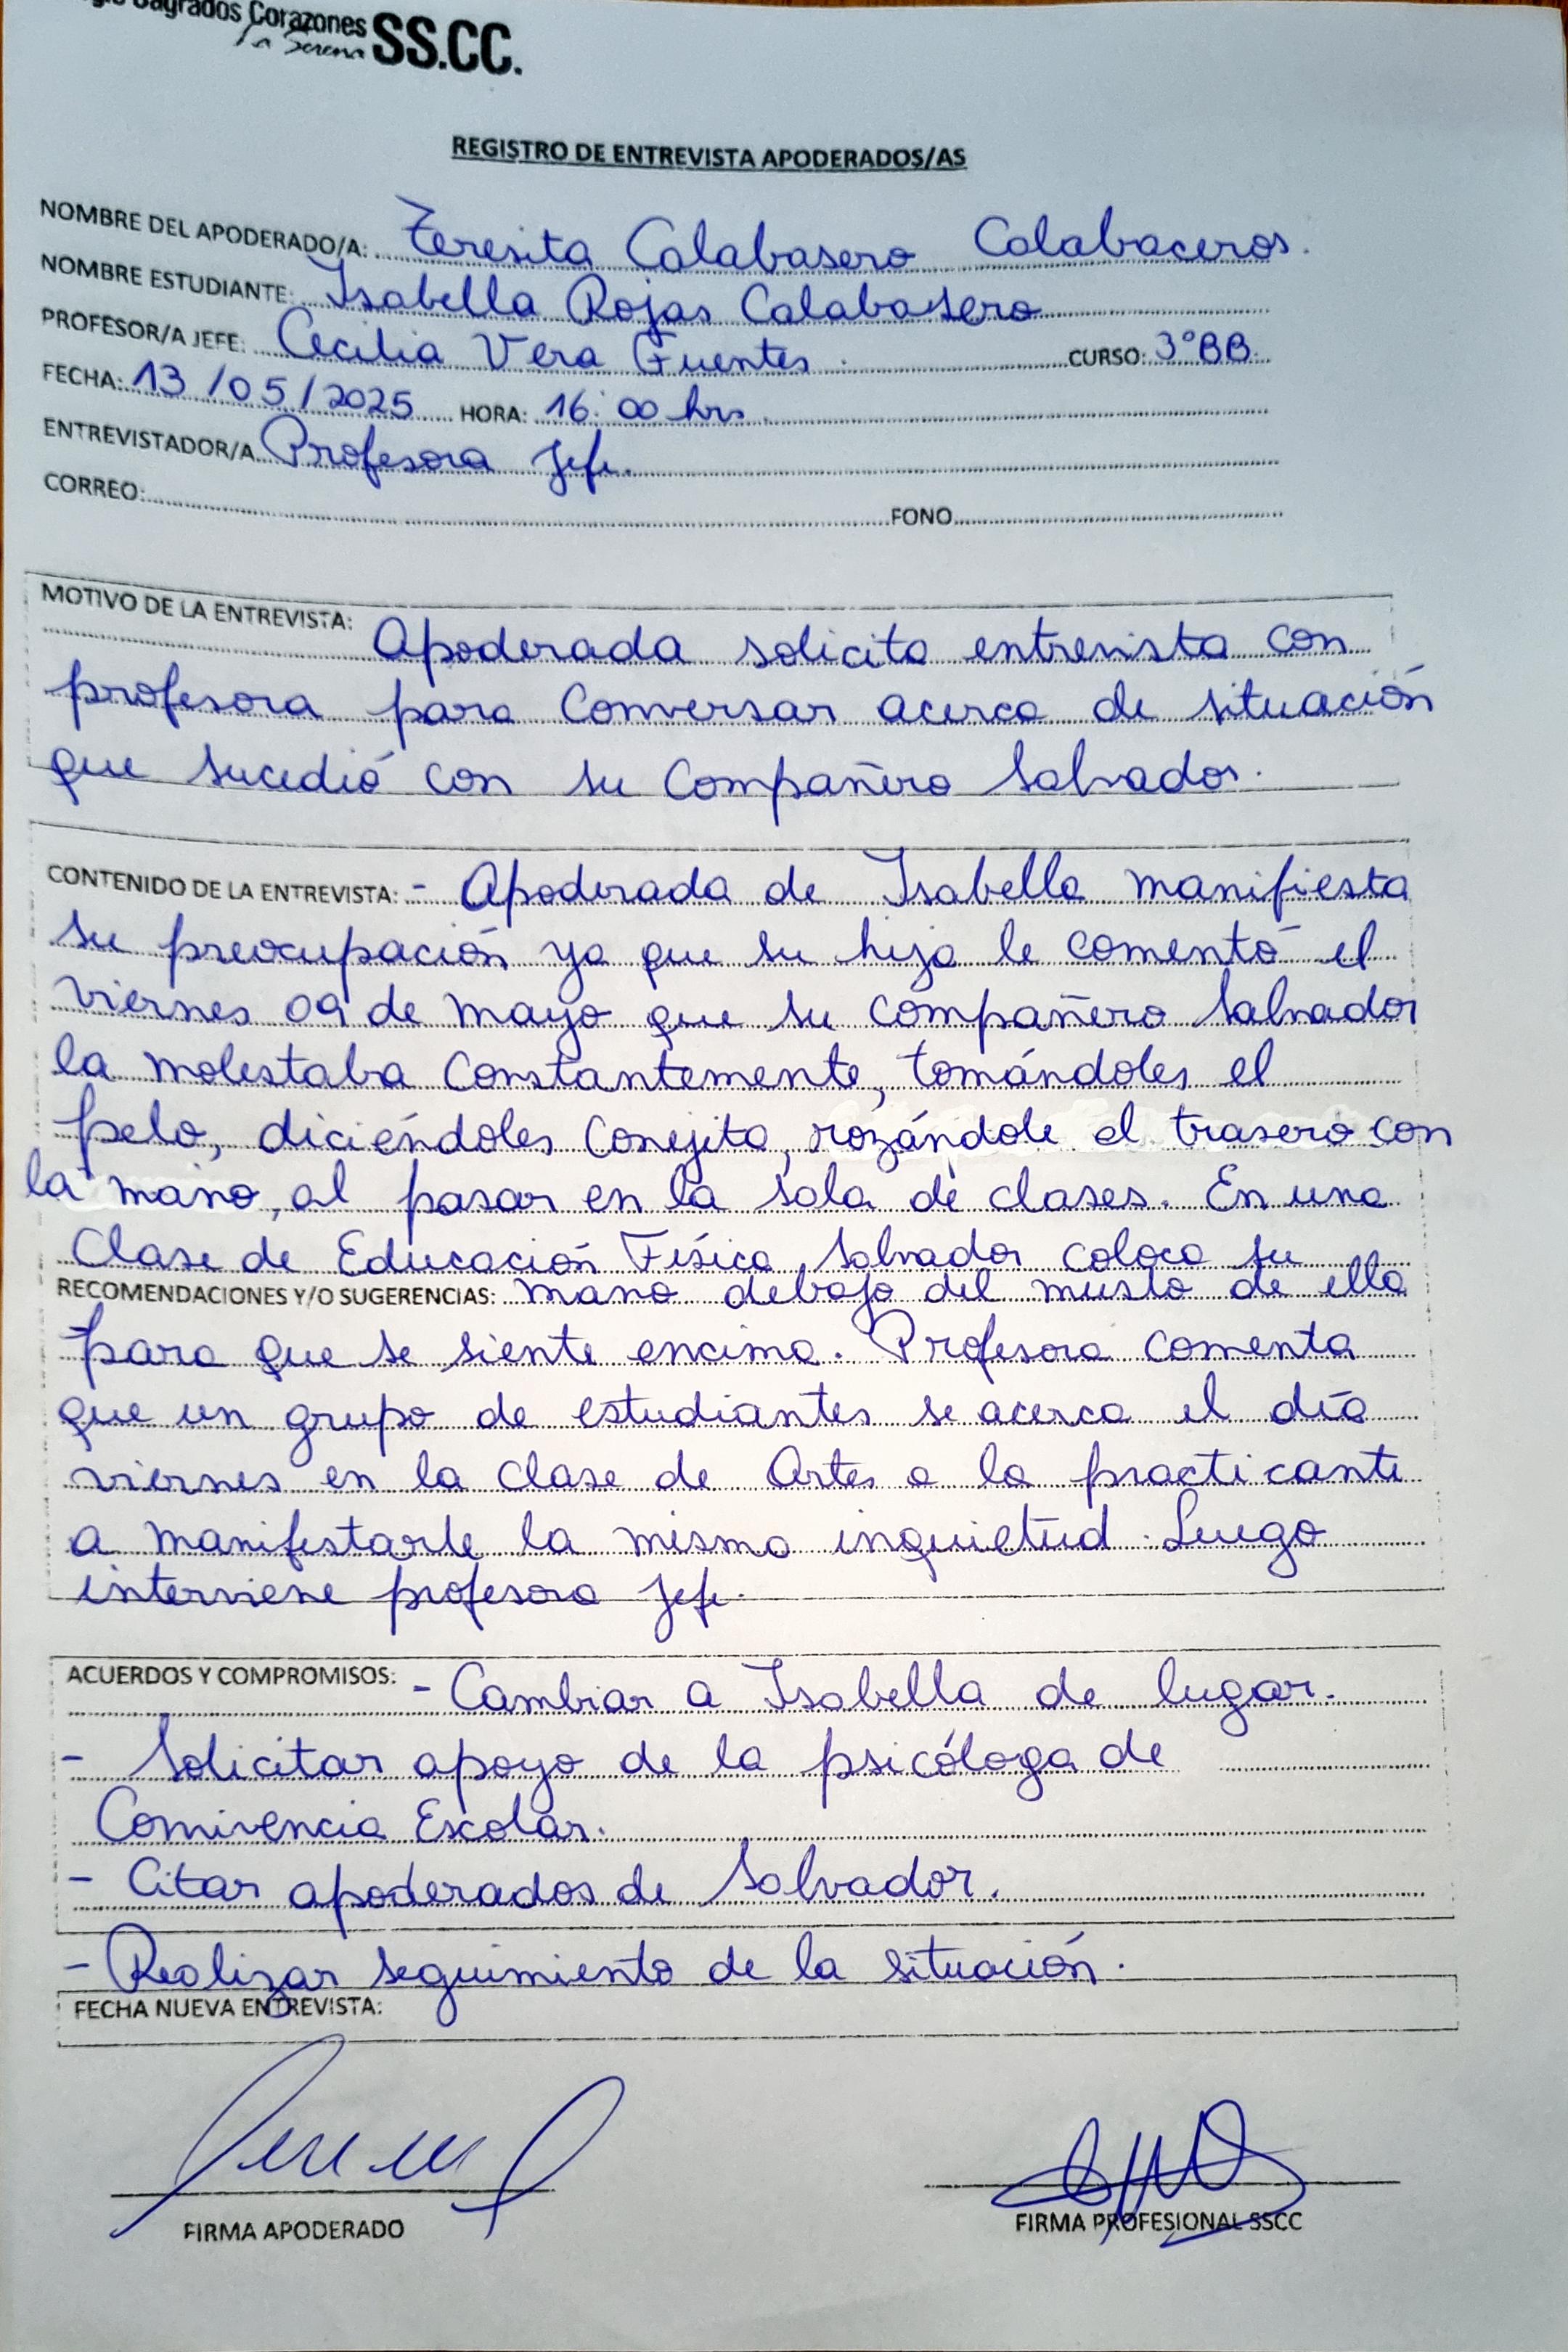 Sagrados Corazones
La Serena SS.CC.
REGISTRO DE ENTREVISTA APODERADOS/AS
NOMBRE DEL APODERADO/A: Teresita Calabasero Calabaceros.
NOMBRE ESTUDIANTE: Isabella Rojas Calabasero
PROFESOR/A JEFE: Cecilia Vera Fuentes. CURSO: 3°BB
FECHA: 13/05/2025 HORA: 16:00 hrs
ENTREVISTADOR/A Profesora Jefe.
CORREO: FONO
MOTIVO DE LA ENTREVISTA: Apoderada solicita entrevista con
profesora para conversar acerca de situación
que sucedió con su compañero Salvador.
CONTENIDO DE LA ENTREVISTA: - Apoderada de Isabella manifiesta
su preocupación ya que su hija le comentó el
viernes 09 de mayo que su compañero Salvador
la molestaba constantemente, tomándoles el
pelo, diciéndoles conejita, rozándole el trasero con
la mano, al pasar en la sala de clases. En una
clase de Educación Física Salvador coloca su
RECOMENDACIONES Y/O SUGERENCIAS: mano debajo del muslo de ella
para que se siente encima. Profesora comenta
que un grupo de estudiantes se acerca el día
viernes en la clase de Artes a la practicante
a manifestarle la misma inquietud. Luego
interviene profesora Jefe.
ACUERDOS Y COMPROMISOS: - Cambiar a Isabella de lugar.
- Solicitar apoyo de la psicóloga de
Convivencia Escolar.
- Citar apoderados de Salvador.
- Realizar seguimiento de la situación.
FECHA NUEVA ENTREVISTA:
FIRMA APODERADO FIRMA PROFESIONAL SSCC